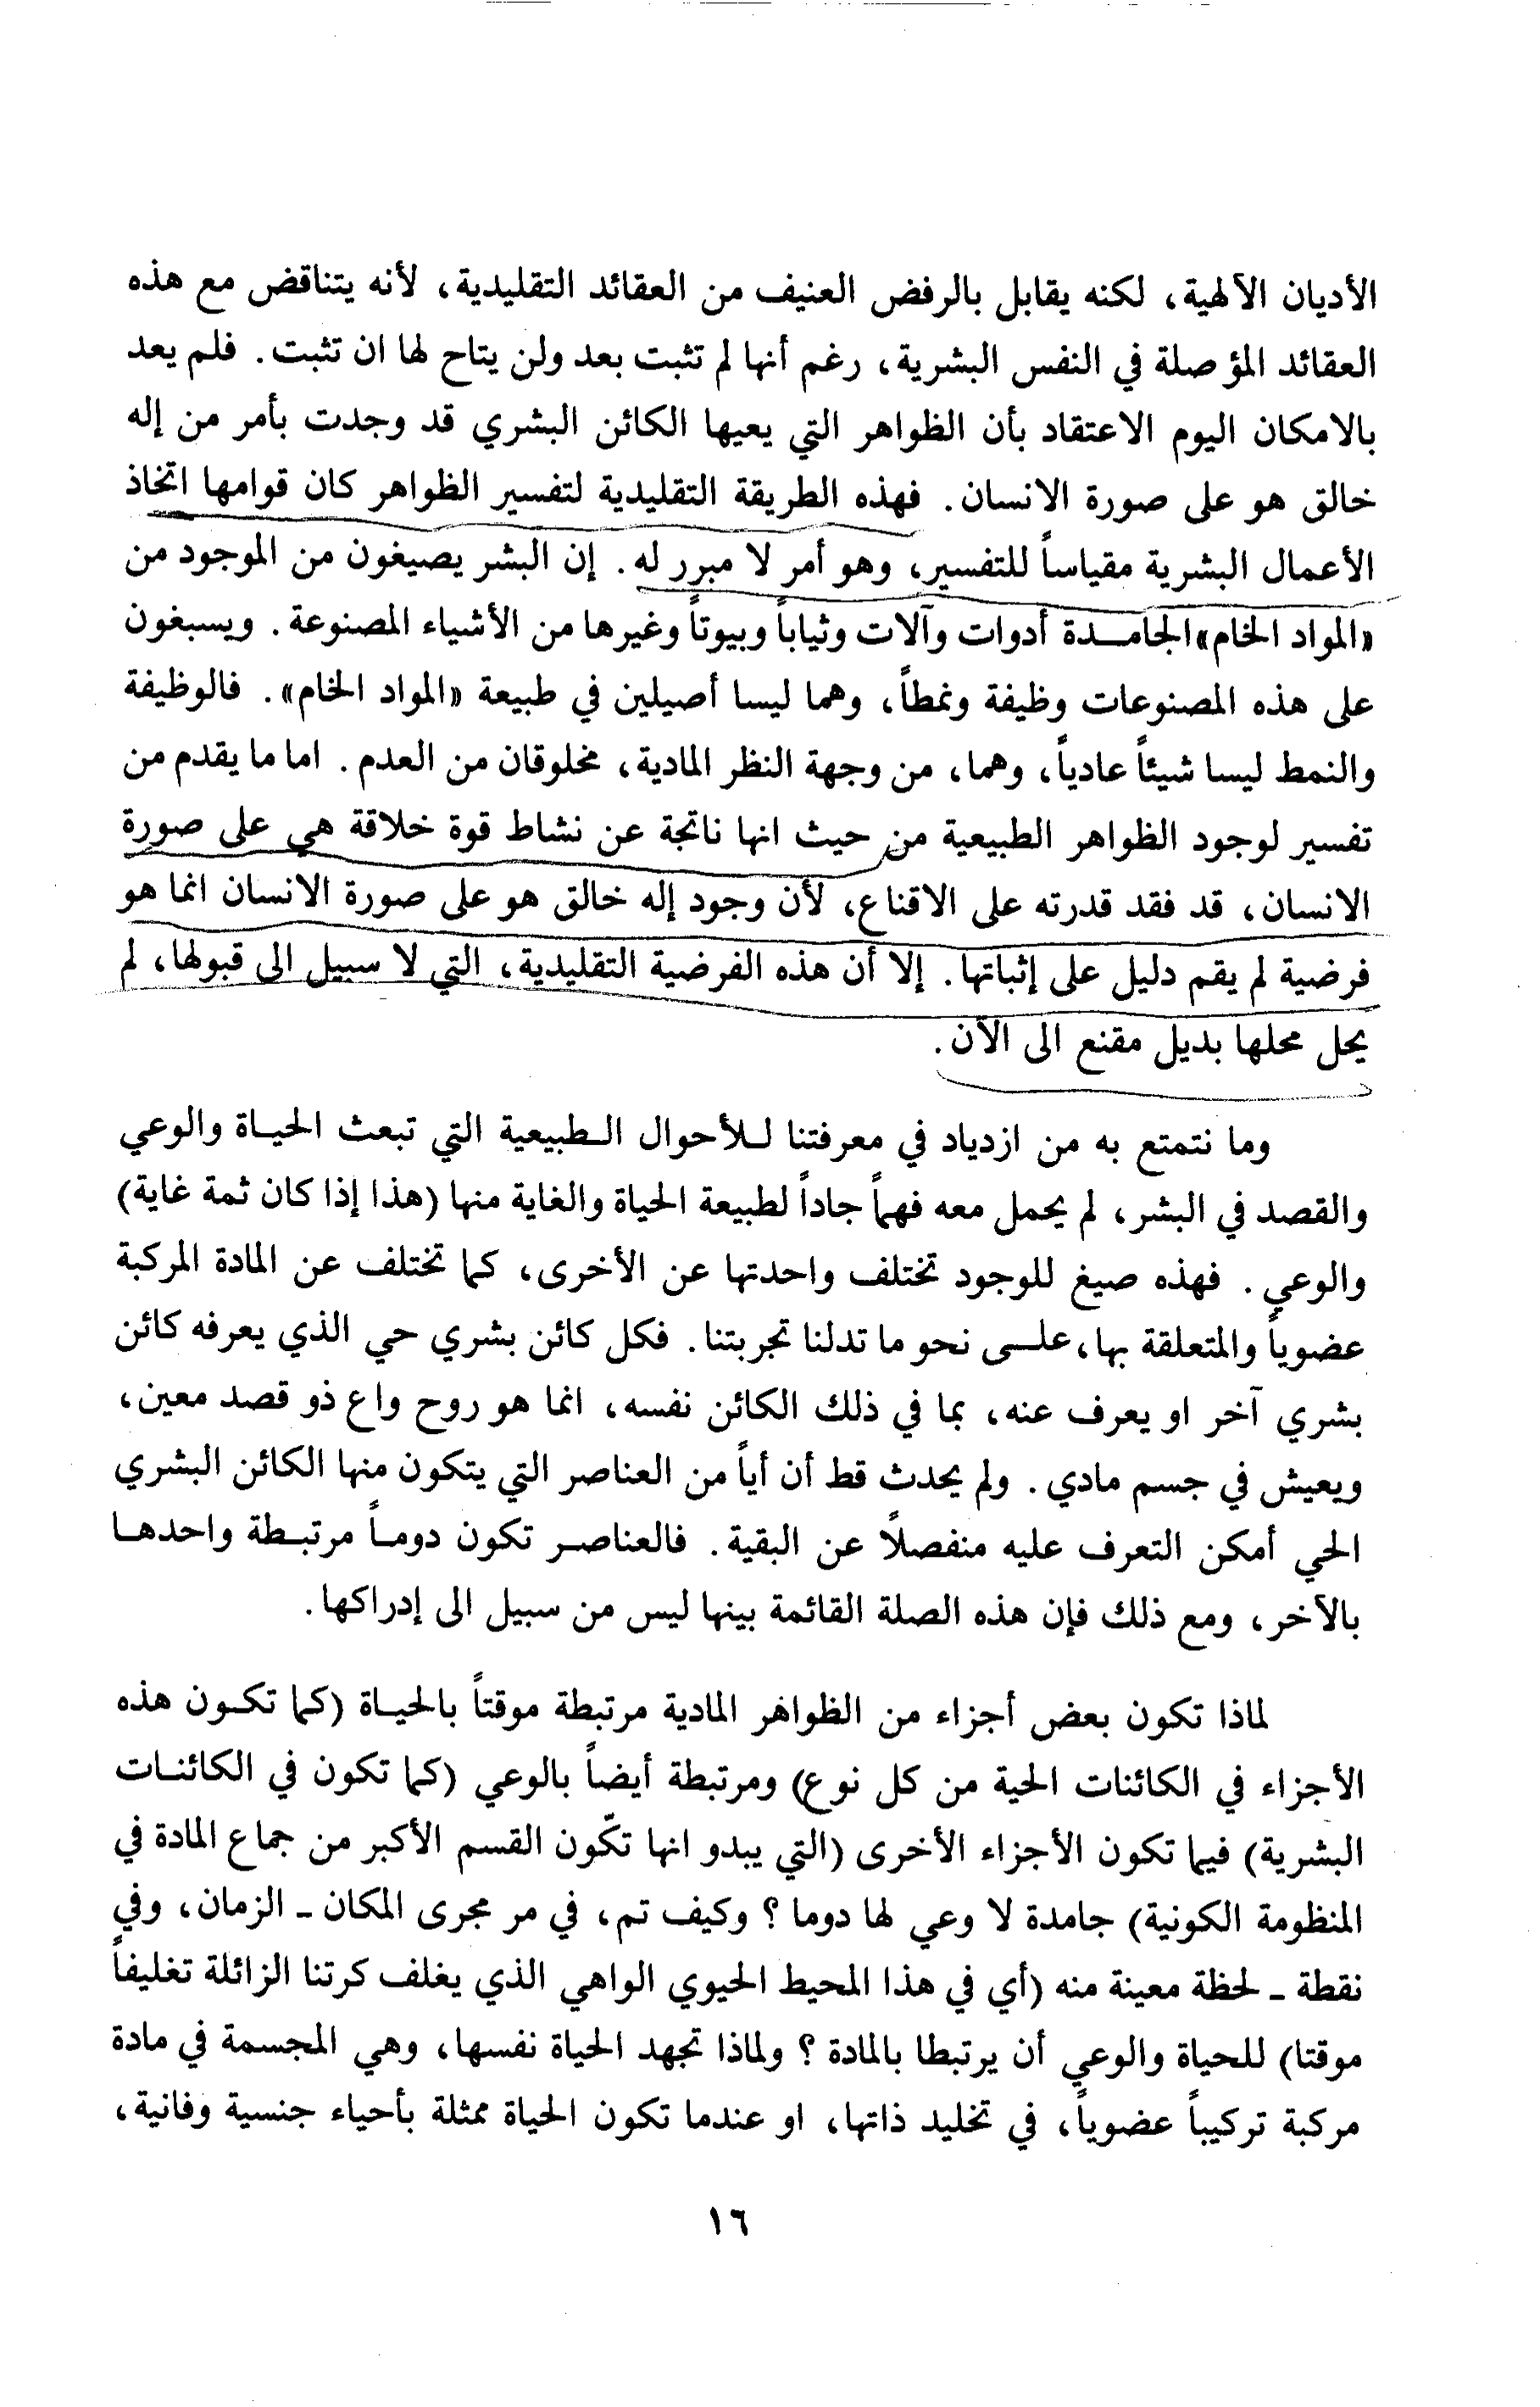 الأديان الآلهية، لكنه يقابل بالرفض العنيف من العقائد التقليدية، لأنه يتناقض مع هذه
العقائد المؤصلة في النفس البشرية، رغم أنها لم تثبت بعد ولن يتاح لها ان تثبت. فلم يعد
بالامكان اليوم الاعتقاد بأن الظواهر التي يعيها الكائن البشري قد وجدت بأمر من إله
خالق هو على صورة الانسان. فهذه الطريقة التقليدية لتفسير الظواهر كان قوامها اتخاذ
الأعمال البشرية مقياساً للتفسير، وهو أمر لا مبرر له. إن البشر يصيغون من الموجود من
«المواد الخام» الجامدة أدوات وآلات وثياباً وبيوتاً وغيرها من الأشياء المصنوعة. ويسبغون
على هذه المصنوعات وظيفة ونمطاً، وهما ليسا أصيلين في طبيعة «المواد الخام». فالوظيفة
والنمط ليسا شيئاً عادياً، وهما، من وجهة النظر المادية، مخلوقان من العدم. اما ما يقدم من
تفسير لوجود الظواهر الطبيعية من حيث انها ناتجة عن نشاط قوة خلاقة هي على صورة
الانسان، قد فقد قدرته على الاقناع، لأن وجود إله خالق هو على صورة الانسان انما هو
فرضية لم يقم دليل على إثباتها. إلا أن هذه الفرضية التقليدية، التي لا سبيل الى قبولها، لم
يحل محلها بديل مقنع الى الآن.
وما نتمتع به من ازدياد في معرفتنا للأحوال الطبيعية التي تبعث الحياة والوعي
والقصد في البشر، لم يحمل معه فهماً جاداً لطبيعة الحياة والغاية منها (هذا إذا كان ثمة غاية)
والوعي. فهذه صيغ للوجود تختلف واحدتها عن الأخرى، كما تختلف عن المادة المركبة
عضوياً والمتعلقة بها، على نحو ما تدلنا تجربتنا. فكل كائن بشري حي الذي يعرفه كائن
بشري آخر او يعرف عنه، بما في ذلك الكائن نفسه، انما هو روح واع ذو قصد معين،
ويعيش في جسم مادي. ولم يحدث قط أن أياً من العناصر التي يتكون منها الكائن البشري
الحي أمكن التعرف عليه منفصلاً عن البقية. فالعناصر تكون دوماً مرتبطة واحدها
بالآخر، ومع ذلك فإن هذه الصلة القائمة بينها ليس من سبيل الى إدراكها.
لماذا تكون بعض أجزاء من الظواهر المادية مرتبطة موقتاً بالحياة (كما تكون هذه
الأجزاء في الكائنات الحية من كل نوع) ومرتبطة أيضاً بالوعي (كما تكون في الكائنات
البشرية) فيما تكون الأجزاء الأخرى (التي يبدو انها تكّون القسم الأكبر من جماع المادة في
المنظومة الكونية) جامدة لا وعي لها دوما ؟ وكيف تم، في مر مجرى المكان - الزمان، وفي
نقطة - لحظة معينة منه (أي في هذا المحيط الحيوي الواهي الذي يغلف كرتنا الزائلة تغليفاً
موقتا) للحياة والوعي أن يرتبطا بالمادة ؟ ولماذا تجهد الحياة نفسها، وهي المجسمة في مادة
مركبة تركيباً عضوياً، في تخليد ذاتها، او عندما تكون الحياة ممثلة بأحياء جنسية وفانية،
١٦